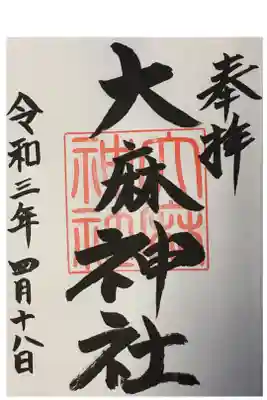 奉拝
大麻神社
大麻神社
令和三年 四月十八日